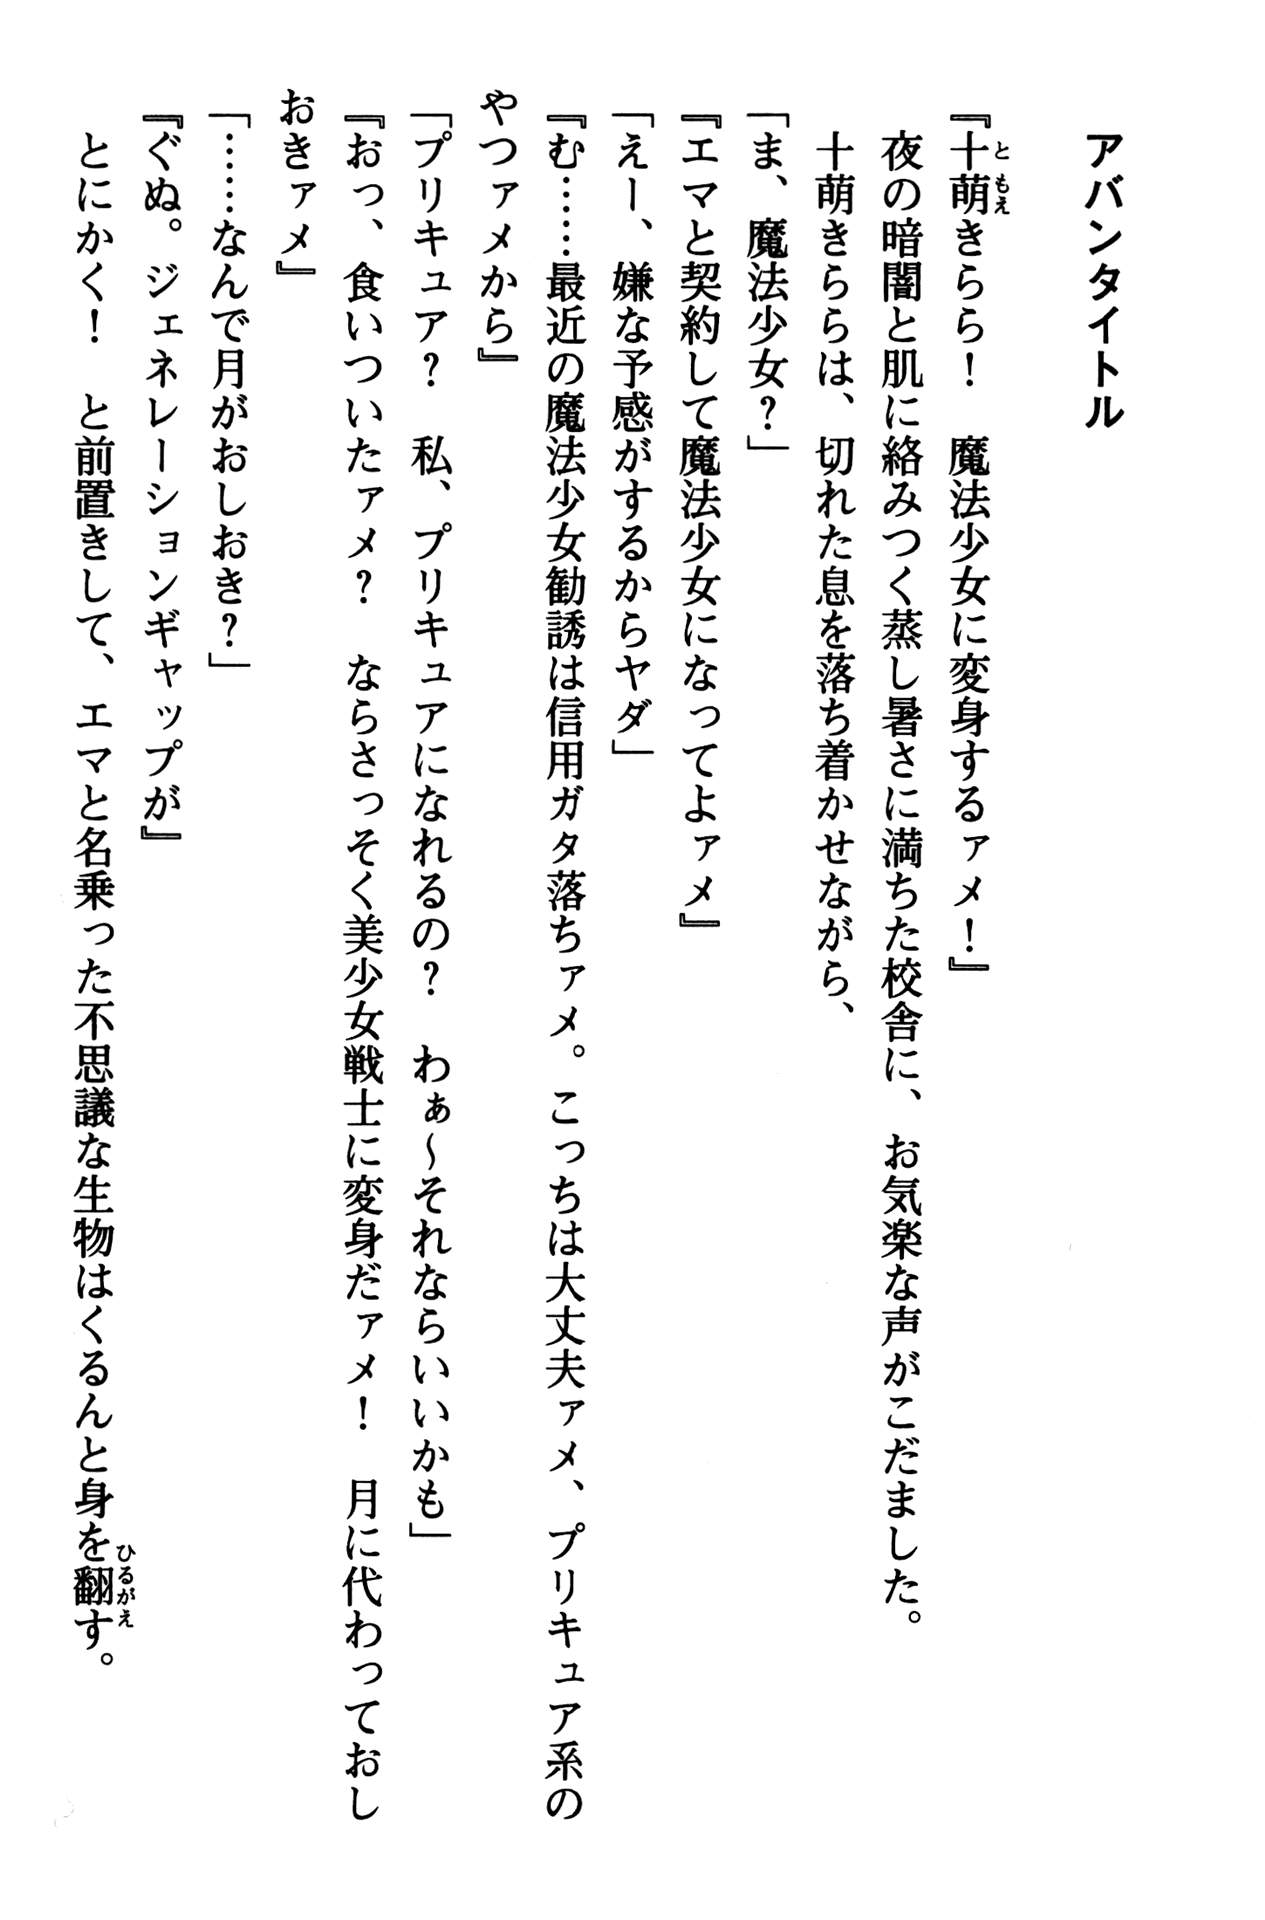 アバンタイトル
『十萌きらら！　魔法少女に変身するァメ！』
ともえ
夜の暗闇と肌に絡みつく蒸し暑さに満ちた校舎に、お気楽な声がこだました。
十萌きららは、切れた息を落ち着かせながら、
「ま、魔法少女？」
『エマと契約して魔法少女になってよァメ』
「えー、嫌な予感がするからヤダ」
『む……最近の魔法少女勧誘は信用ガタ落ちァメ。こっちは大丈夫ァメ、プリキュア系の
やつァメから』
「プリキュア？　私、プリキュアになれるの？　わぁ～それならいいかも」
『おっ、食いついたァメ？　ならさっそく美少女戦士に変身だァメ！　月に代わっておし
おきァメ』
「……なんで月がおしおき？」
『ぐぬ。ジェネレーションギャップが』
とにかく！　と前置きして、エマと名乗った不思議な生物はくるんと身を翻す。
ひるがえ